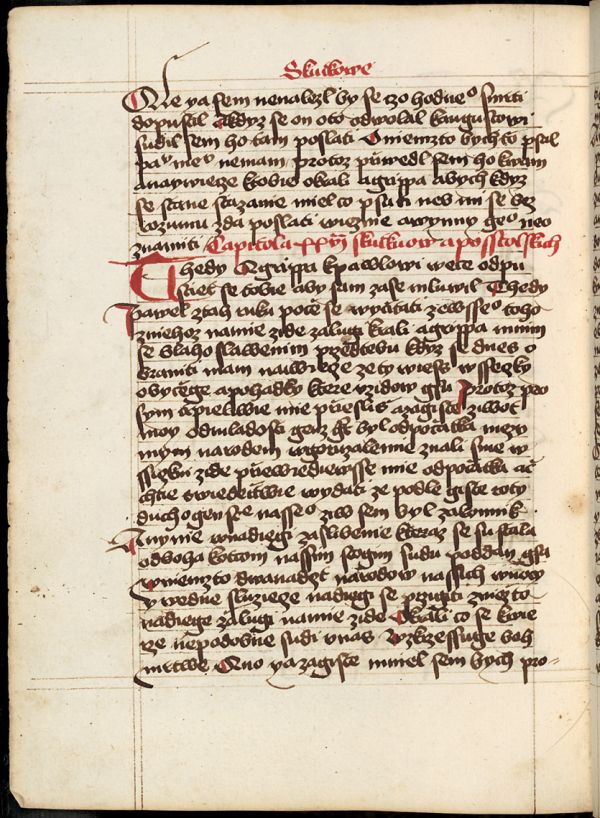 Skutkowe
Ale ya sem nenalezl by se czo hodneo smrti
dopustil Akdyz se on oto odwolal kaugustowi
sudil sem ho tam poslati Oniemzto bych czo psal
panu meo nemam protoz przwedl sem ho kwam
anaywieze ktobie okrali agrippa abych kdyz
se stane otazanie miel co psati neb mi se bez
rozumu zda poslati wieznie awynny geo neo
znamiti Capitola xxvj skutkuow aposstolskich
Thedy Agrippa kpawlowi wece odpu
stiet se tobie aby sam zase mluwil Thedy
Pawel ztah ruku pocze se wyczitati zewsseo toho
zniehoz namie zide zalugi krali agrippa mnim
se blaho slawenim przed tebu kdyz se dnes o
braniti mam naiwieze ze ty wiess wssezky
obyczege apohadky ktere vzidow gsu Protoz pro
sym trpieliwie mie przieslis azagiste ziwot
moy odmladosti genz gt byl odpoczatka mezy
mym narodem wgeruzalemie znali sme w
ssiczkni zide przewiediewsse mie odpoczatka ac
chtie swiedeczstwie wydati ze podle giste roty
duchogenstwie nasseo ziw sem byl zakonnik
Anynie wnadiegi zaslibenie kteraz se su stala
odboha kotcom nassim stogim sudu poddan gsa
wniemzto dwanadzt narodow nassich wnocy
y wedne sluziecze nadiegi se przgiti zniezto
nadiege zalugi namie zide Okrali co se kwie
rze nepodobne sudi vnas Wzkrzessuge boh
mrtwe Ano ya zagiste mniel sem bych pro-